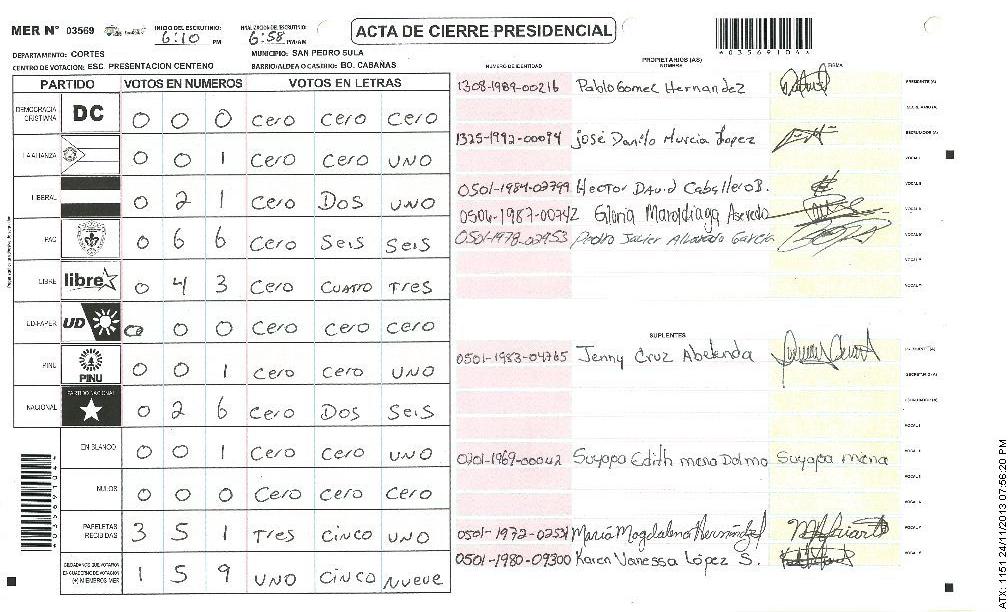 MER Nº 03569 INICIO DEL ESCRUTINIO: 6:10 PM FINALIZACION DEL ESCRUTINIO: 6:58 PM-AM
ACTA DE CIERRE PRESIDENCIAL
*03569104*
DEPARTAMENTO: CORTES MUNICIPIO: SAN PEDRO SULA
CENTRO DE VOTACION: ESC. PRESENTACION CENTENO BARRIO/ALDEA O CASERIO: BO. CABAÑAS
PARTIDO VOTOS EN NUMEROS VOTOS EN LETRAS
DEMOCRACIA CRISTIANA DC 0 0 0 Cero Cero Cero
LA ALIANZA 0 0 1 Cero Cero UNO
LIBERAL 0 2 1 Cero DOS UNO
PAC 0 6 6 Cero SEIS SEIS
LIBRE libre 0 4 3 Cero CUATRO Tres
UD-FAPER UD 0 0 0 Cero Cero Cero
PINU PINU 0 0 1 Cero Cero UNO
NACIONAL PARTIDO NACIONAL 0 2 6 Cero DOS SEIS
EN BLANCO 0 0 1 Cero Cero UNO
NULOS 0 0 0 Cero Cero Cero
PAPELETAS RECIBIDAS 3 5 1 Tres CINCO UNO
CIUDADANOS QUE VOTARON EN CUADERNO DE VOTACION (+) MIEMBROS MER 1 5 9 UNO CINCO Nueve
PROPIETARIOS (AS)
NUMERO DE IDENTIDAD NOMBRE FIRMA
1308-1989-00216 Pablo Gomez Hernandez PRESIDENTE (A)
SECRETARIO (A)
1325-1992-00094 José Danilo Murcia Lopez ESCRUTADOR (A)
VOCAL I
0501-1984-02799 Hector David Caballero B. VOCAL II
0506-1987-00742 Gloria
0501-1978-02953 Pedro Javier Alvarado García
SUPLENTES
0501-1983-04765 Jenny Cruz PRESIDENTE (A)
SECRETARIO (A)
ESCRUTADOR (A)
VOCAL I
0201-1969-00042 Suyapa Edith mena Suyapa mena
0501-1972-0254 María Magdalena Hernández
0501-1980-09300 Karen Vanessa López S.
*03569104*
ATX: 1151 24/11/2013 07:56:20 PM